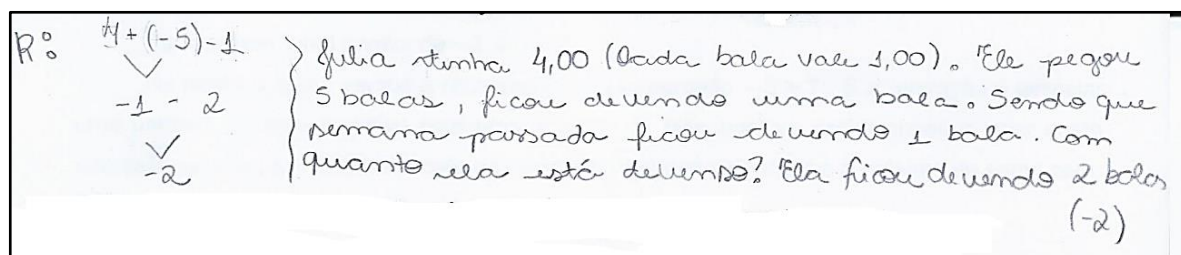 R: 4 + (-5) - 1
-1 - 2
-2
Julia tinha 4,00 (Cada bala vale 1,00). Ele pegou
5 balas, ficou devendo uma bala. Sendo que
semana passada ficou devendo 1 bala. Com
quanto ela está devenso? Ela ficou devendo 2 balas
(-2)